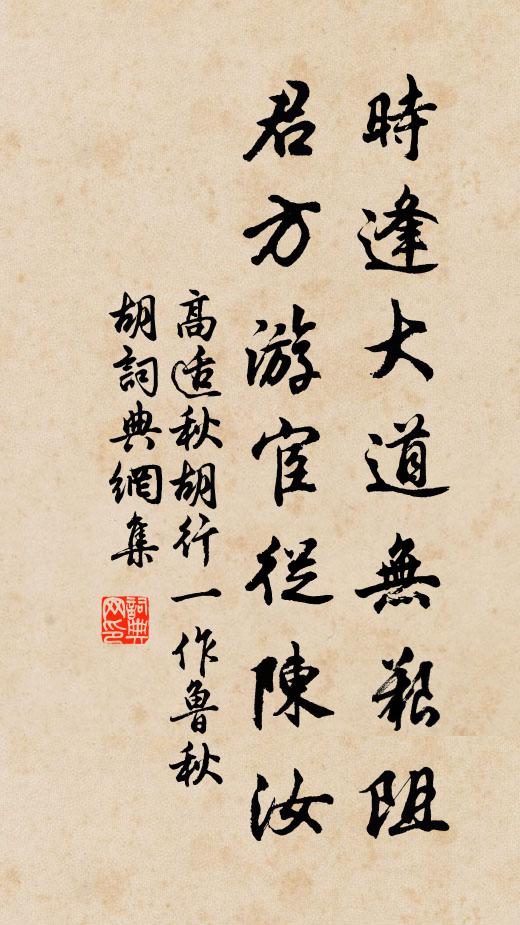 時逢大道無艱阻
君方游宦從陳汝
高适秋胡行一作魯秋
胡詞典網集
詞典网印